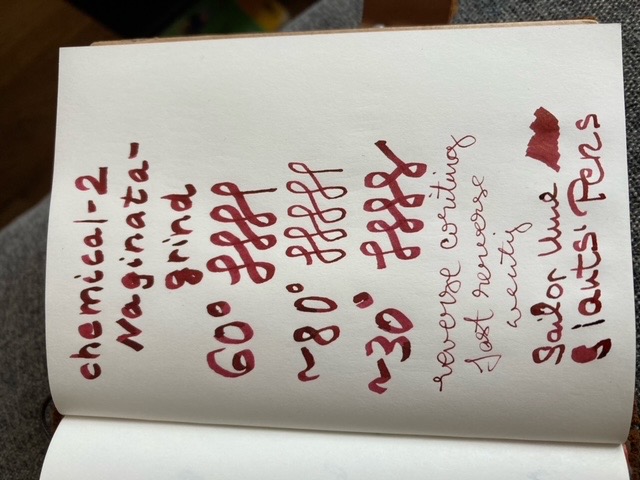 chemical-2
Naginata-
grind
60°
~80°
~30°
reverse coriting
fast reverse
Sailor Ume
Giants' Pens